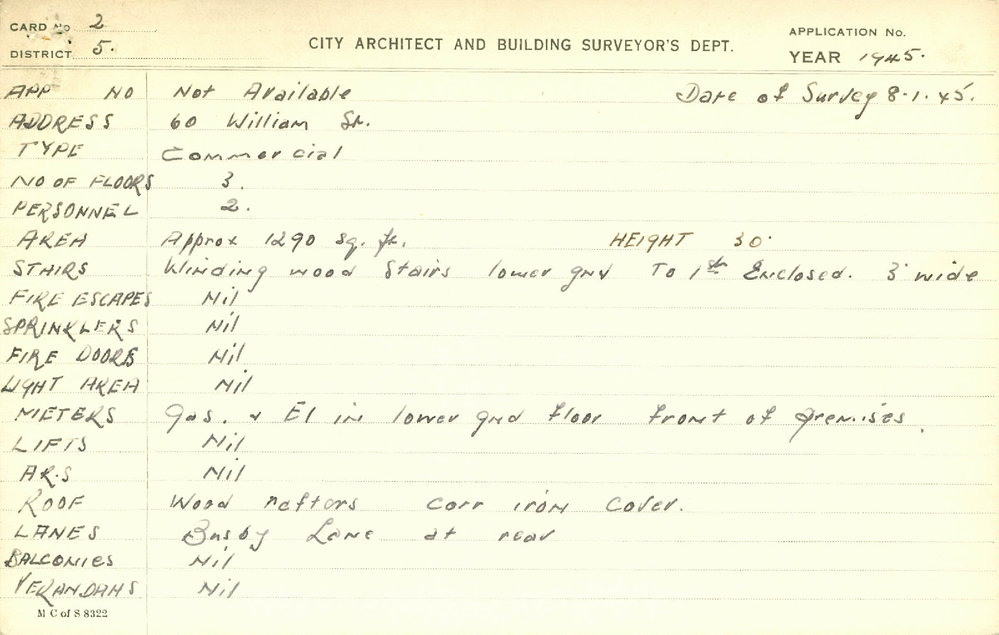 CARD No 2
DISTRICT 5.
CITY ARCHITECT AND BUILDING SURVEYOR'S DEPT.
APPLICATION No.
YEAR 1945.
APP NO Not Available Date of Survey 8.1.45.
ADDRESS 60 William St.
TYPE Commercial
NO OF FLOORS 3.
PERSONNEL 2.
AREA Approx 1290 sq. ft. HEIGHT 30'
STAIRS Winding wood stairs lower gnd To 1st Enclosed. 3' wide
FIRE ESCAPES Nil
SPRINKLERS Nil
FIRE DOORS Nil
LIGHT AREA Nil
METERS Gas. & El in lower gnd floor front of premises.
LIFTS Nil
A.R.S Nil
ROOF Wood rafters corr iron cover.
LANES Busby Lane at rear
BALCONIES Nil
VERANDAHS Nil
M C of S 8322